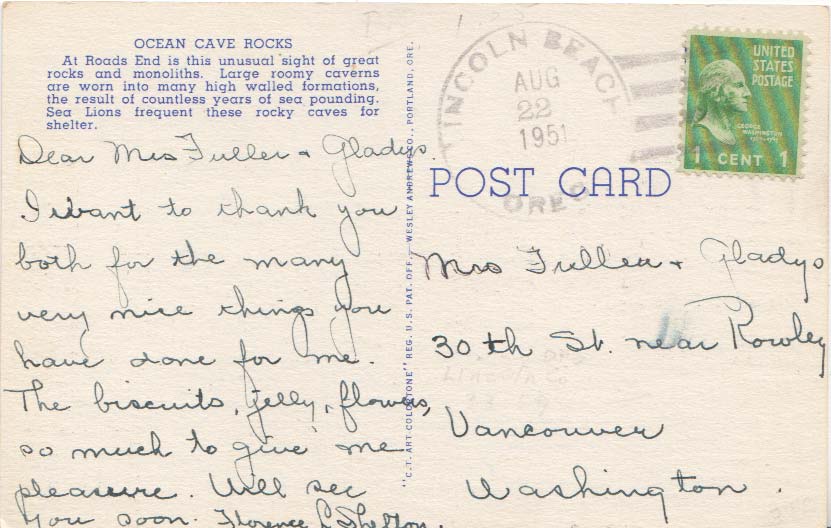 OCEAN CAVE ROCKS
At Roads End is this unusual sight of great
rocks and monoliths. Large roomy caverns
are worn into many high walled formations,
the result of countless years of sea pounding.
Sea Lions frequent these rocky caves for
shelter.
Dear Mrs Fuller + Gladys.
I want to thank you
both for the many
very nice things you
have done for me.
The biscuits, jelly, flowers,
so much to give me
pleasure. Will see
you soon. Florence L Shelton.
"C.T. ART-COLORTONE" REG. U.S. PAT. OFF.—WESLEY ANDREWS CO., PORTLAND, ORE.
LINCOLN BEACH
AUG
22
1951
OREG
UNITED
STATES
POSTAGE
GEORGE
WASHINGTON
1 CENT 1
POST CARD
Mrs Fuller + Gladys
30th St. near Rowley
Vancouver
Washington.